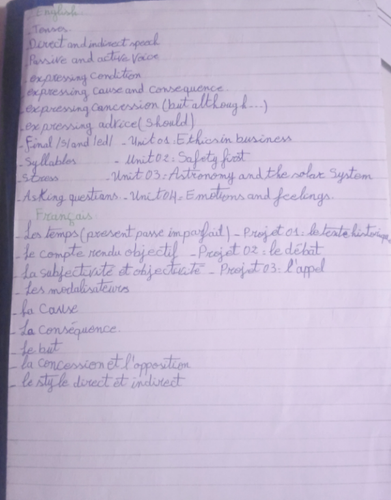 English
- Tenses
- Direct and indirect speech
- Passive and active voice
- expressing condition
- expressing cause and consequence
- expressing concession (but although...)
- expressing advice (should)
- Final /s/ and /ed/ - Unit 01: Ethics in business
- Syllables - Unit 02: Safety first
- Stress - Unit 03: Astronomy and the solar System
- Asking questions - Unit 04: Emotions and feelings.
Français
- Les temps (présent passé imparfait) - Projet 01: le texte historique
- Le compte rendu objectif - Projet 02: le débat
- La sabjectivité et objectivité - Projet 03: l'appel
- Les modalisateurs
- La Cause
- La conséquence
- Le but
- la concession et l'opposition
- le style direct et indirect